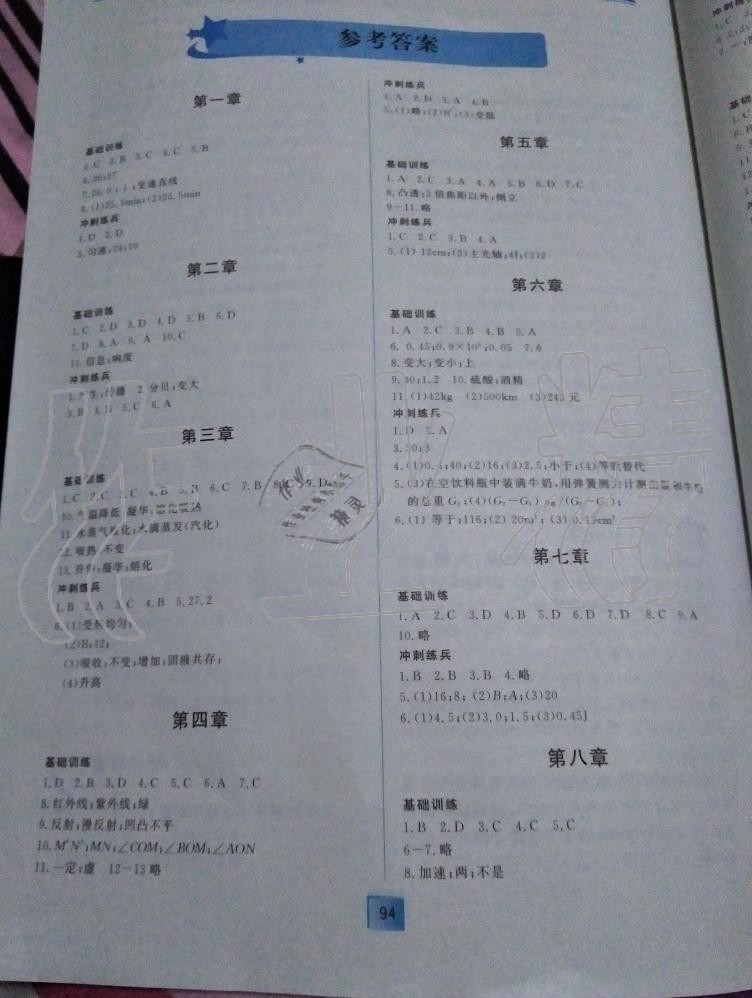 参考答案
第一章
基础训练
1.C 2.B 3.C 4.C 5.B
6.36;27
变速直线
8.(1)25.5min;(2)25.5min
冲刺练兵
1.D 2.D
3.匀速;24;10
第二章
基础训练
1.C 2.D 3.D 4.D 5.B 6.D
7.D 8.A 9.A 10.C
11.信息;响度
冲刺练兵
2.分贝;变大
3.B 5.C 6.A
第三章
基础训练
1.C 2.C 3.B 4.C 5.B 6.C 7.B 8.C 9.D
降低 凝华 熔化吸热
水滴蒸发(汽化)
12.吸热 不变
凝华;熔化
冲刺练兵
1.B 2.A 3.C 4.B 5.27.2
6.(1)受热均匀;
(2)B;42;
(3)吸收;不变;增加;固液共存;
(4)升高
第四章
基础训练
1.D 2.B 3.D 4.C 5.C 6.A 7.C
8.红外线;紫外线;绿
9.反射;漫反射;凹凸不平
10.M′N′;MN;∠COM;∠BOM;∠AON
11.一定;虚 12-13 略
冲刺练兵
1.A 2.D 3.A 4.B
5.(1)略;(2)B′;(3)变低
第五章
基础训练
1.A 2.C 3.A 4.D 5.B 6.D 7.C
8.凸透;2倍焦距以外;倒立
9-11.略
冲刺练兵
1.C 2.C 3.B 4.A
5.(1) 12cm;(2)主光轴;4f;(3)2
第六章
基础训练
1.A 2.C 3.B 4.B 5.A
6. 0.45;0.9×10³;0.05 7.6
8.变大;变小;上
9.40;1.2 10.硫酸;酒精
11.(1)42kg (2)500km (3)243元
冲刺练兵
1.D 2.A
3.30;3
4.(1)0.4;40;(2)16;(3)2.5;小于;(4)等效替代
5.(3)在空饮料瓶中装满牛奶,用弹簧测力计测出瓶和牛奶
的总重G₃;(4)(G₃-G₁)ρ水/(G₂-G₁);
6.(1) 等于;116;(2) 20m³;(3) 0.19cm³
第七章
基础训练
1.A 2.C 3.D 4.B 5.D 6.D 7.D 8.C 9.A
10.略
冲刺练兵
1.B 2.B 3.B 4.略
5.(1)16;8; (2)B;A;(3)20
6.(1)4.5;(2)3.0;1.5;(3)0.45J
第八章
基础训练
1.B 2.D 3.C 4.C 5.C
6-7.略
8.加速;两;不是
94